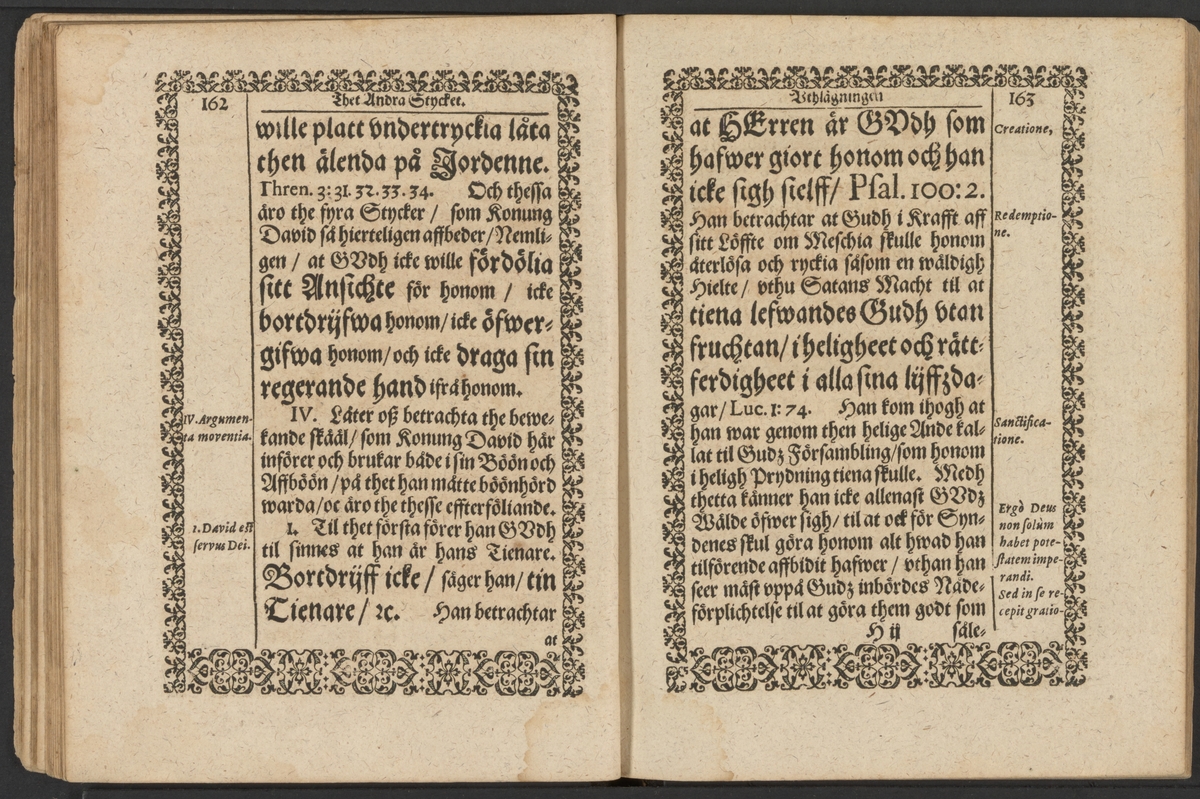 162
Thet Andra Stycket.
wille platt vndertryckia låta
then älenda på Jordenne.
Thren. 3: 31. 32. 33. 34. Och thessa
äro the fyra Stycker / som Konung
David så hierteligen affbeder / Nemli-
gen / at GVdh icke wille fördölia
sitt Ansichte för honom / icke
bortdrijfwa honom / icke öfwer-
gifwa honom / och icke draga sin
regerande hand ifrå honom.
IV. Argumen-
ta moventia.
IV. Låter oß betrachta the bewe-
kande skääl / som Konung David här
införer och brukar både i sin Böön och
Affböön / på thet han måtte böönhörd
warda / oc äro the thesse effterföliande.
1. David est
servus Dei.
1. Til thet första förer han GVdh
til sinnes at han är hans Tienare.
Bortdrijff icke / säger han / tin
Tienare / ꝛc. Han betrachtar
at
Vthläggningen
163
at HErren är GVdh som
hafwer giort honom och han
icke sigh sielff / Psal. 100: 2.
Han betrachtar at Gudh i Krafft aff
sitt Löffte om Meschia skulle honom
återlösa och ryckia såsom en wäldigh
Hielte / vthu Satans Macht til at
tiena lefwandes Gudh vtan
fruchtan / i heligheet och rätt-
ferdigheet i alla sina lijffzda-
gar / Luc. 1: 74. Han kom ihogh at
han war genom then helige Ande kal-
lat til Gudz Försambling / som honom
i heligh Prydning tiena skulle. Medh
thetta känner han icke allenast GVdz
Wälde öfwer sigh / til at ock för Syn-
denes skul göra honom alt hwad han
tilförende affbidit hafwer / vthan han
seer mäst vppå Gudz inbördes Nåde-
förplichtelse til at göra them godt som
H ij
såle-
Creatione,
Redemptio-
ne.
Sanctifica-
tione.
Ergò Deus
non solùm
habet pote-
statem impe-
randi.
Sed in se re-
cepit gratio-